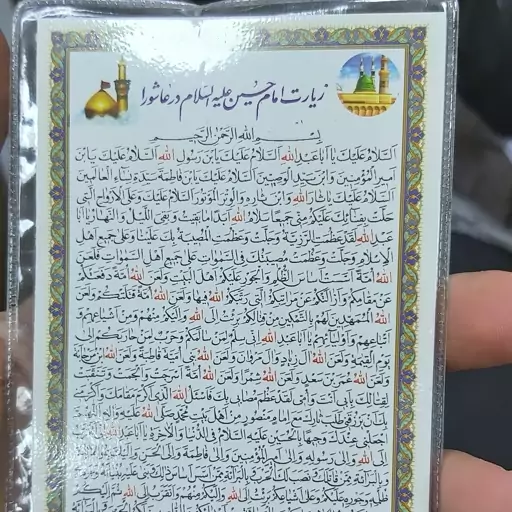 زیارت امام حسین علیه السلام در عاشورا
بِسْمِ اللهِ الرَّحْمٰنِ الرَّحیمِ
اَلسَّلامُ عَلَیْکَ یا اَباعَبْدِاللهِ اَلسَّلامُ عَلَیْکَ یَابْنَ رَسُولِ اللهِ اَلسَّلامُ عَلَیْکَ یَابْنَ
اَمیرِالْمُؤْمِنینَ وَابْنَ سَیِّدِ الْوَصِیّینَ اَلسَّلامُ عَلَیْکَ یَابْنَ فاطِمَةَ سَیِّدَةِ نِساءِ الْعالَمینَ
اَلسَّلامُ عَلَیْکَ یا ثارَ اللهِ وَابْنَ ثارِهِ وَالْوِتْرَ الْمَوْتُورَ اَلسَّلامُ عَلَیْکَ وَعَلَی الْاَرْواحِ الَّتی
حَلَّتْ بِفِنائِکَ عَلَیْکُمْ مِنّی جَمیعًا سَلامُ اللهِ اَبَدًا ما بَقیتُ وَبَقِیَ اللَّیْلُ وَالنَّهارُ یا اَبا
عَبْدِاللهِ لَقَدْ عَظُمَتِ الرَّزِیَّةُ وَجَلَّتْ وَعَظُمَتِ الْمُصیبَةُ بِکَ عَلَیْنا وَعَلی جَمیعِ اَهْلِ
الْاِسْلامِ وَجَلَّتْ وَعَظُمَتْ مُصیبَتُکَ فِی السَّمٰواتِ عَلی جَمیعِ اَهْلِ السَّمٰواتِ فَلَعَنَ
اللهُ اُمَّةً اَسَّسَتْ اَساسَ الظُّلْمِ وَالْجَوْرِ عَلَیْکُمْ اَهْلَ الْبَیْتِ وَلَعَنَ اللهُ اُمَّةً دَفَعَتْکُمْ
عَنْ مَقامِکُمْ وَاَزالَتْکُمْ عَنْ مَراتِبِکُمُ الَّتی رَتَّبَکُمُ اللهُ فیها وَلَعَنَ اللهُ اُمَّةً قَتَلَتْکُمْ وَلَعَنَ
اللهُ الْمُمَهِّدینَ لَهُمْ بِالتَّمْکینِ مِنْ قِتالِکُمْ بَرِئْتُ اِلَی اللهِ وَاِلَیْکُمْ مِنْهُمْ وَمِنْ اَشْیاعِهِمْ وَ
اَتْباعِهِمْ وَاَوْلِیائِهِمْ یا اَباعَبْدِ اللهِ اِنّی سِلْمٌ لِمَنْ سالَمَکُمْ وَحَرْبٌ لِمَنْ حارَبَکُمْ اِلی
یَوْمِ الْقِیٰمَةِ وَلَعَنَ اللهُ آلَ زِیادٍ وَآلَ مَرْوانَ وَلَعَنَ اللهُ بَنی اُمَیَّةَ قاطِبَةً وَلَعَنَ اللهُ ابْنَ مَرْجانَةَ
وَلَعَنَ اللهُ عُمَرَ بْنَ سَعْدٍ وَلَعَنَ اللهُ شِمْرًا وَلَعَنَ اللهُ اُمَّةً اَسْرَجَتْ وَاَلْجَمَتْ وَتَنَقَّبَتْ
لِقِتالِکَ بِاَبی اَنْتَ وَاُمّی لَقَدْ عَظُمَ مُصابی بِکَ فَاَسْئَلُ اللهَ الَّذی اَکْرَمَ مَقامَکَ وَاَکْرَمَنی
بِکَ اَنْ یَرْزُقَنی طَلَبَ ثارِکَ مَعَ اِمامٍ مَنْصُورٍ مِنْ اَهْلِ بَیْتِ مُحَمَّدٍ صَلَّی اللهُ عَلَیْهِ وَآلِهِ اَللّهُمَّ
اجْعَلْنی عِنْدَکَ وَجیهًا بِالْحُسَیْنِ عَلَیْهِ السَّلامُ فِی الدُّنْیا وَالْاٰخِرَةِ یا اَباعَبْدِ اللهِ
اِلَی اللهِ وَاِلی رَسُولِهِ وَاِلی اَمیرِالْمُؤْمِنینَ وَاِلی فاطِمَةَ وَاِلَی الْحَسَنِ وَاِلَیْکَ
وَبِالْبَرائَةِ مِمَّنْ قاتَلَکَ وَنَصَبَ لَکَ الْحَرْبَ وَبِالْبَرائَةِ مِمَّنْ اَسَّسَ اَساسَ
ظُلْمِهِ وَجَوْرِهِ عَلَیْکُمْ وَعَلی اَشْیاعِکُمْ بَرِئْتُ اِلَی اللهِ وَاِلَیْکُمْ مِنْهُمْ وَاَتَقَرَّبُ اِلَی اللهِ ثُمَّ اِلَیْکُمْ